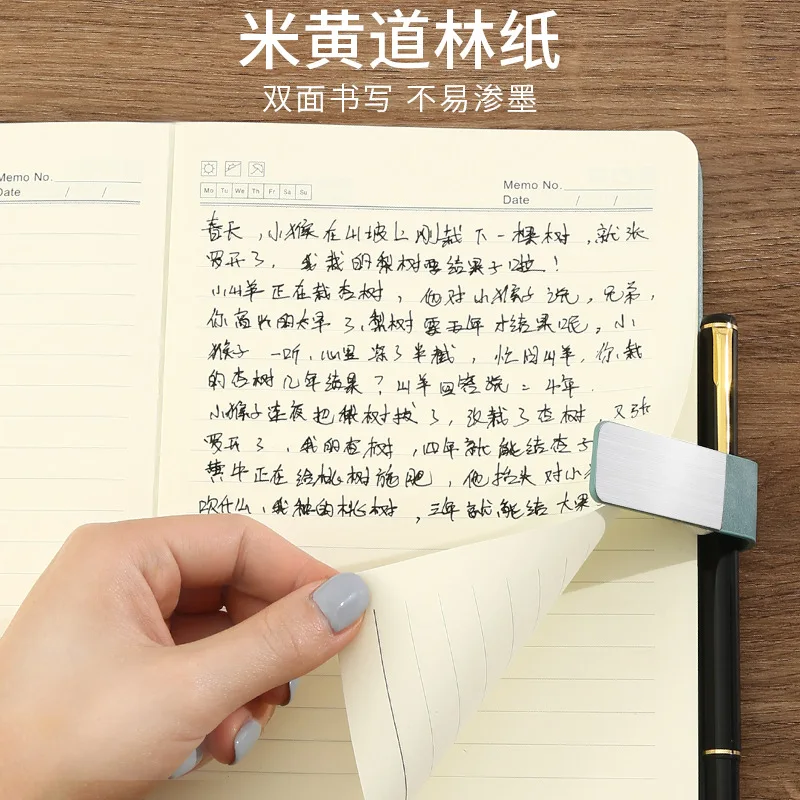 米黄道林纸
双面书写 不易渗墨
Memo No.
Date / /
Mo Tu We Th Fr Sa Su
Memo No.
Date / /
春天,小猴在山坡上刚栽下一棵树,就张
罗开了,我栽的梨树要结果子啦!
小山羊正在栽杏树,他对小猴子说,兄弟,
你高兴的太早了,梨树要五年才结果呢。小
猴子一听,心里凉了半截,忙问山羊,你栽
的杏树几年结果?山羊回答说:4年.
小猴子连夜把梨树拔了,改栽了杏树,又张
罗开了,我的杏树,四年就能结杏子
黄牛正在给桃树施肥,他抬头对小
吹什么,我种的桃树,三年就能结大果